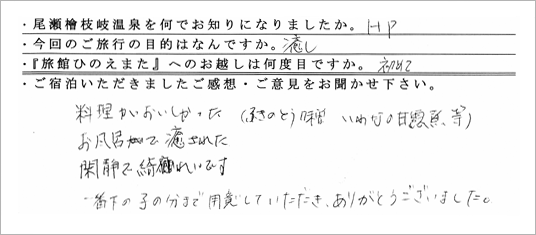 ・尾瀬檜枝岐温泉を何でお知りになりましたか。 HP
・今回のご旅行の目的はなんですか。 癒し
・『旅館ひのえまた』へのお越しは何度目ですか。 初めて
・ご宿泊いただきましたご感想・ご意見をお聞かせ下さい。
料理がおいしかった (ふきのとう味噌 いわなの甘露煮 等)
お風呂 で癒された
閑静で綺麗です
一番下の子の分まで用意していただき、ありがとうございました。